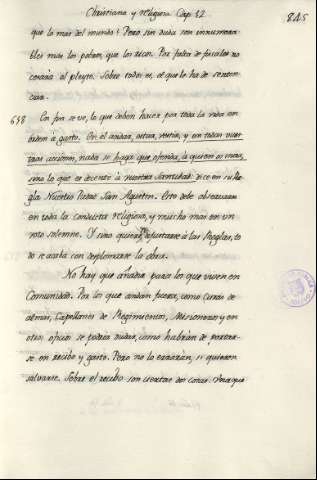 Christiana y religiosa Cap. 12
845
que lo mas del mundo? Pero sin duda son innumera-
bles mas los pobres, que los ricos. Por falta de fiscales no
cesaria el pleyto. Sobre todos es, el que lo ha de senten-
ciar.
638 En fin se ve, lo que deben hacer por toda la vida en
orden à gasto. En el andar, estar, vestir, y en todas vues-
tras acciones, nada se haga que ofenda, à quien os mira,
sino lo que es decente à vuestra Santidad: dice en su Re-
gla Nuestro Padre San Agustin. Esto debe observarse
en toda la conducta religiosa, y mucho mas en un
voto solemne. Y sino quieren ajustarse à las Reglas, to-
do se acaba con desplomarse la obra.
No hay que añadir para los que viven en
Comunidad. Por los que andan fuera, como Curas de
almas, Capellanes de Regimientos, Misioneros y en
otros oficios se podria dudar, como habrian de portar-
se en recibo y gasto. Pero no lo errarán, si quieren
salvarse. Sobre el recibo son ciertas dos cosas. Una que